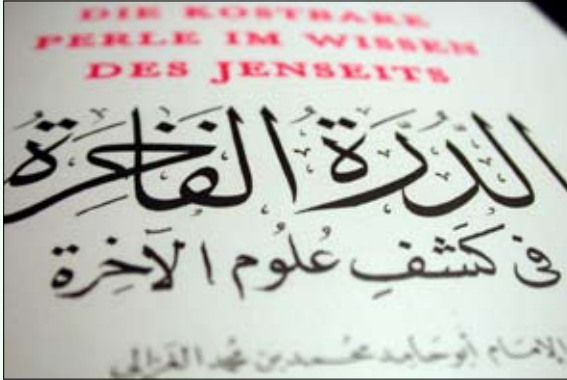 DIE KOSTBARE
PERLE IM WISSEN
DES JENSEITS
الدُّرَّة الفَاخِرَة
فى كَشْفِ عُلُوم الآخِرَة
الإمَام أبو حَامِد محمد بن محمد الغزالى